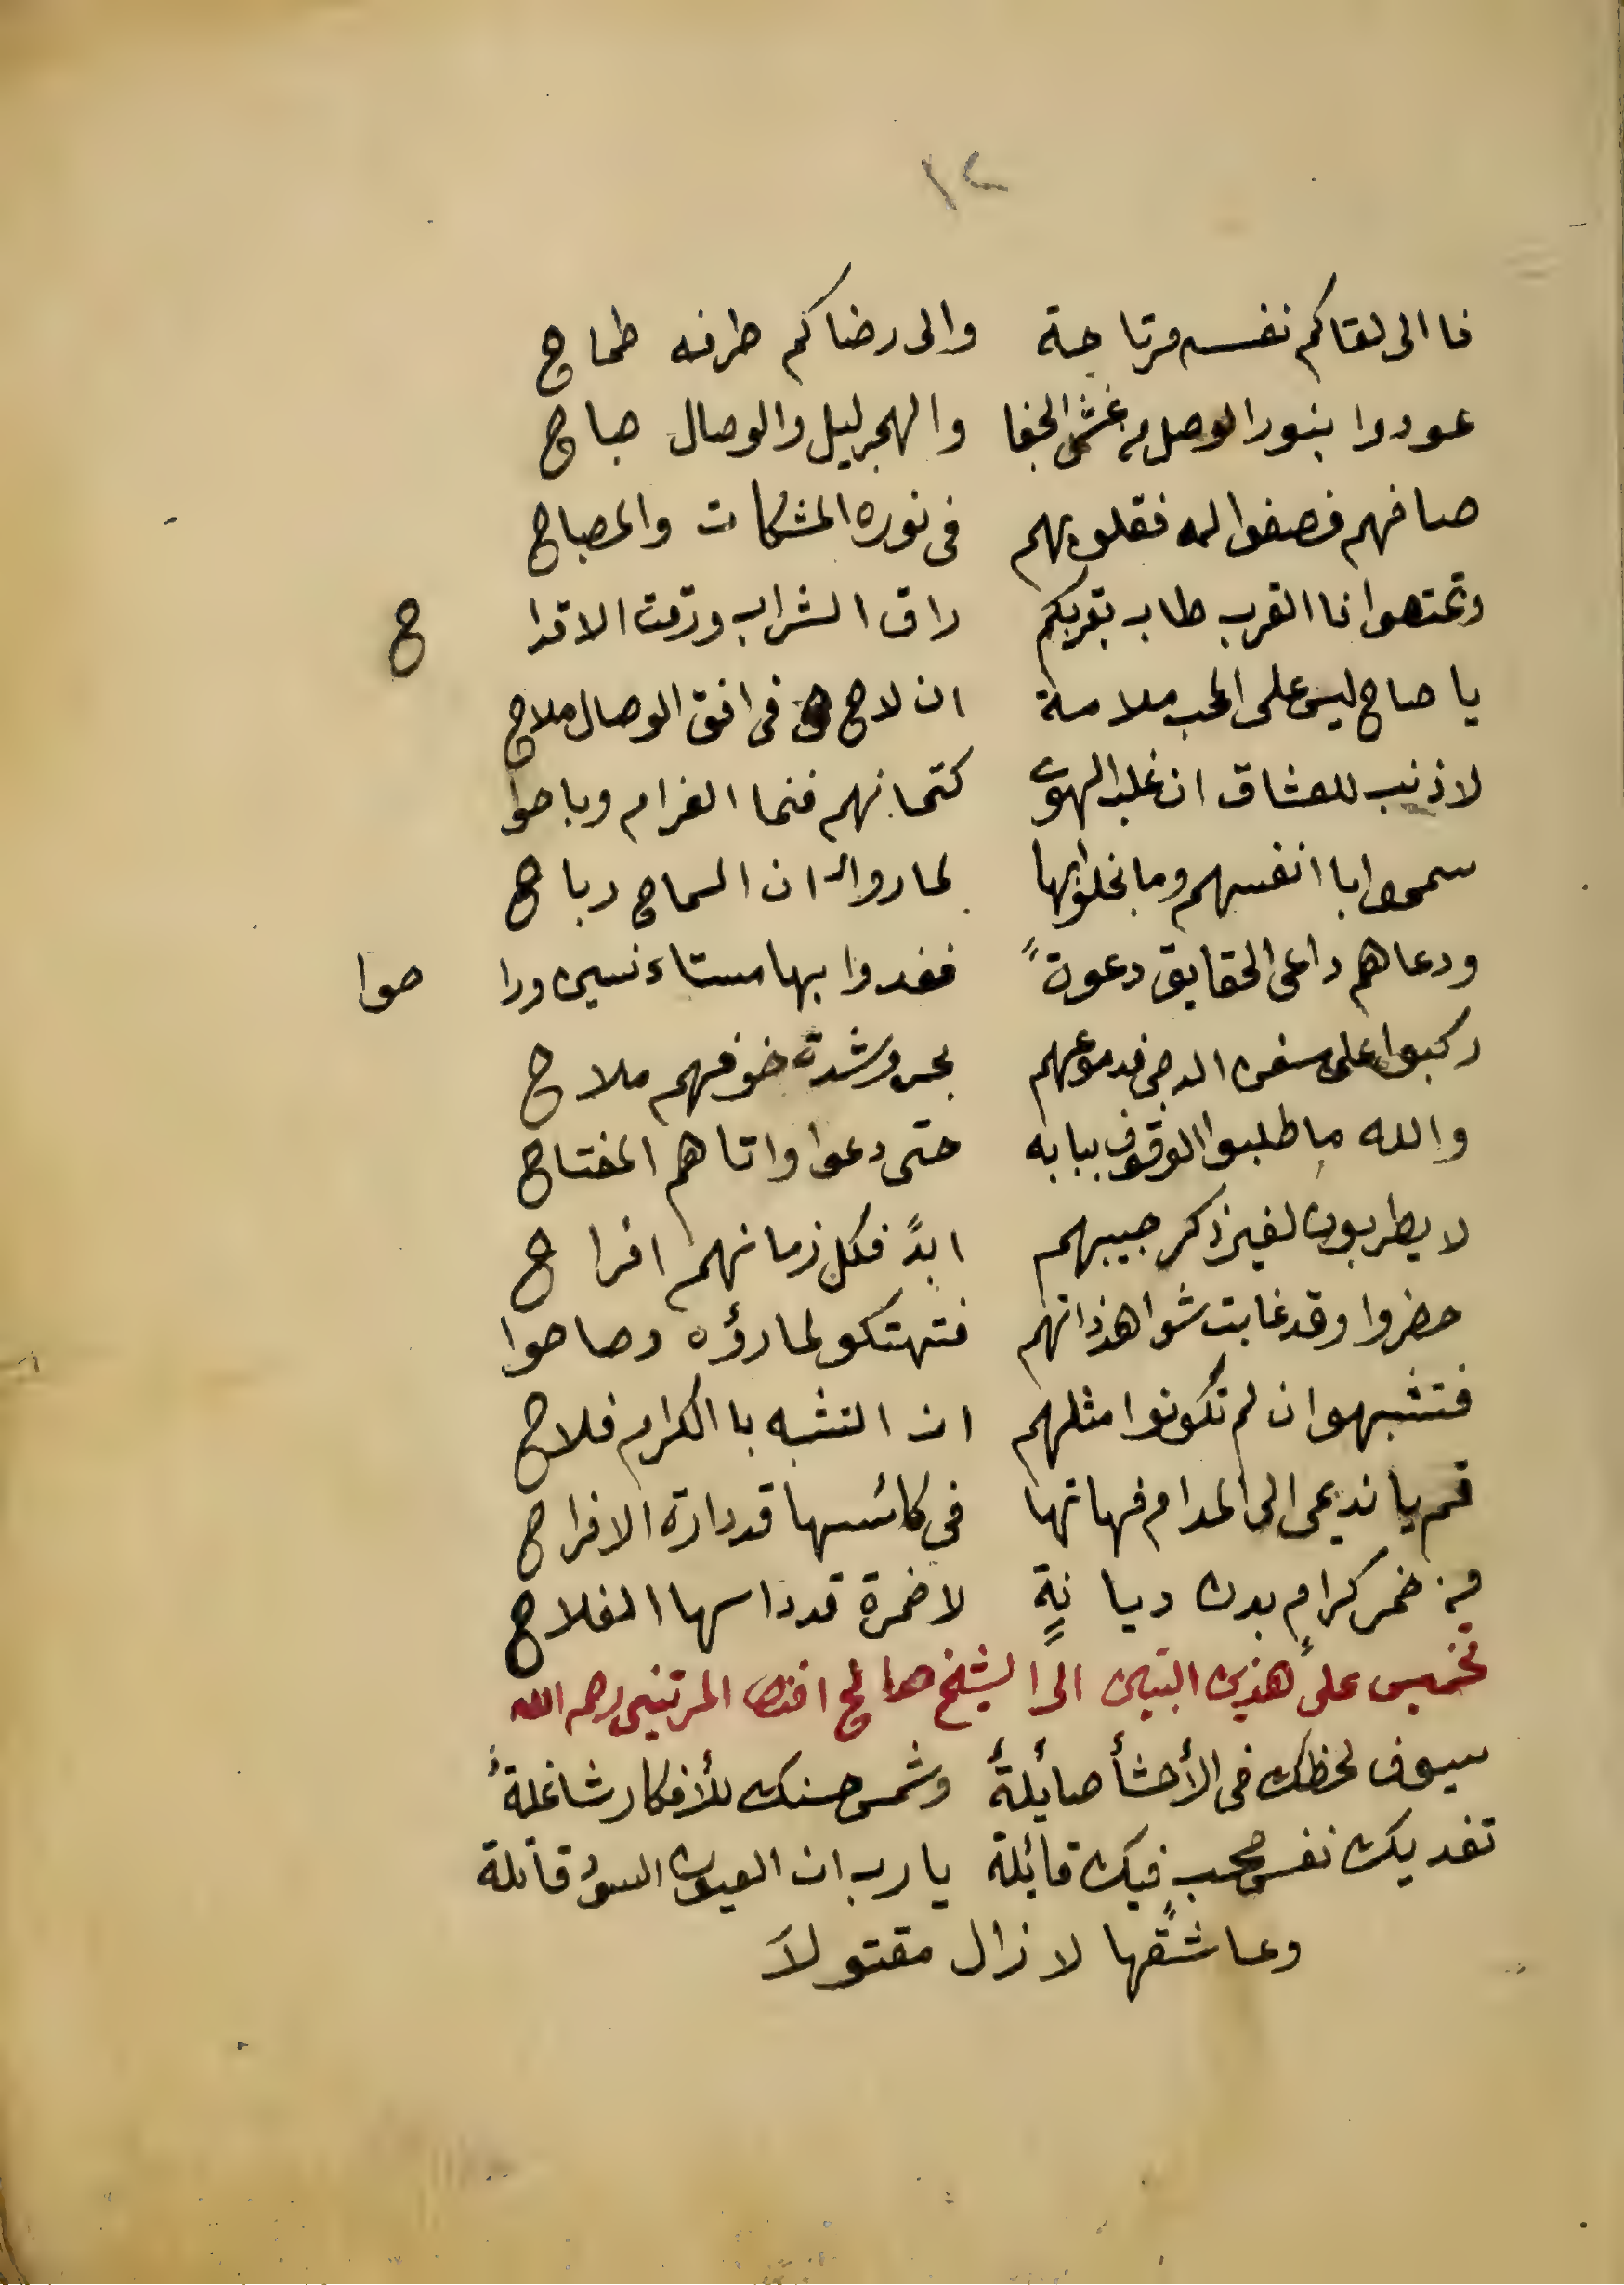 ١٢
فا الى لقاكم نفسه مرتاحة والى رضاكم طرفه طماح
عودوا بنور الوصل من غسق الجفا والهجر ليل والوصال صباح
صافهم فصفوا له فقلوبهم فى نوره المشكات والمصباح
وتمتعوا فا القرب طاب بقربكم راق الشراب ورقت الاقدا ح
يا صاح ليس على المحب ملامة ان لاح فى افق الوصال ملاح
لا ذنب للعشاق ان غلب الهوى كتمانهم فنما الغرام وباحوا
سمحوا با انفسهم وما بخلوا بها لما روا ان السماح رباح
ودعاهم داعى الحقايق دعوةً فغدوا بها مستاءنسين ورا حوا
ركبوا على سفن الدجى فدموعهم بحر وشدة خوفهم ملاح
والله ما طلبوا الوقوف ببابه حتى دعوا واتاهم المفتاح
لا يطربون لغير ذكر حبيبهم ابدً فكل زمانهم افراح
حضروا وقد غابت شواهد ذاتهم فتهتكو لما رؤه وصاحوا
فتشبهوا ان لم تكونوا مثلهم ان التشبه با الكرام فلاح
قم يا نديمى الى المدام فهاتها فى كائسها قد دارة الافراح
من خمر كرام بدن ديا نةٍ لا خمرة قد داسها الفلاح
تخميس على هذين البتين الى الشيخ صالح افندى المرتينى رحمه الله
سيوف لحظك فى الأحشأ صايلةٌ وشمس حسنك للأفكار شاغلةٌ
تفديك نفس محب فيك قائلة يا رب ان العيون السود قاتلة
وعاشقها لا زال مقتولا